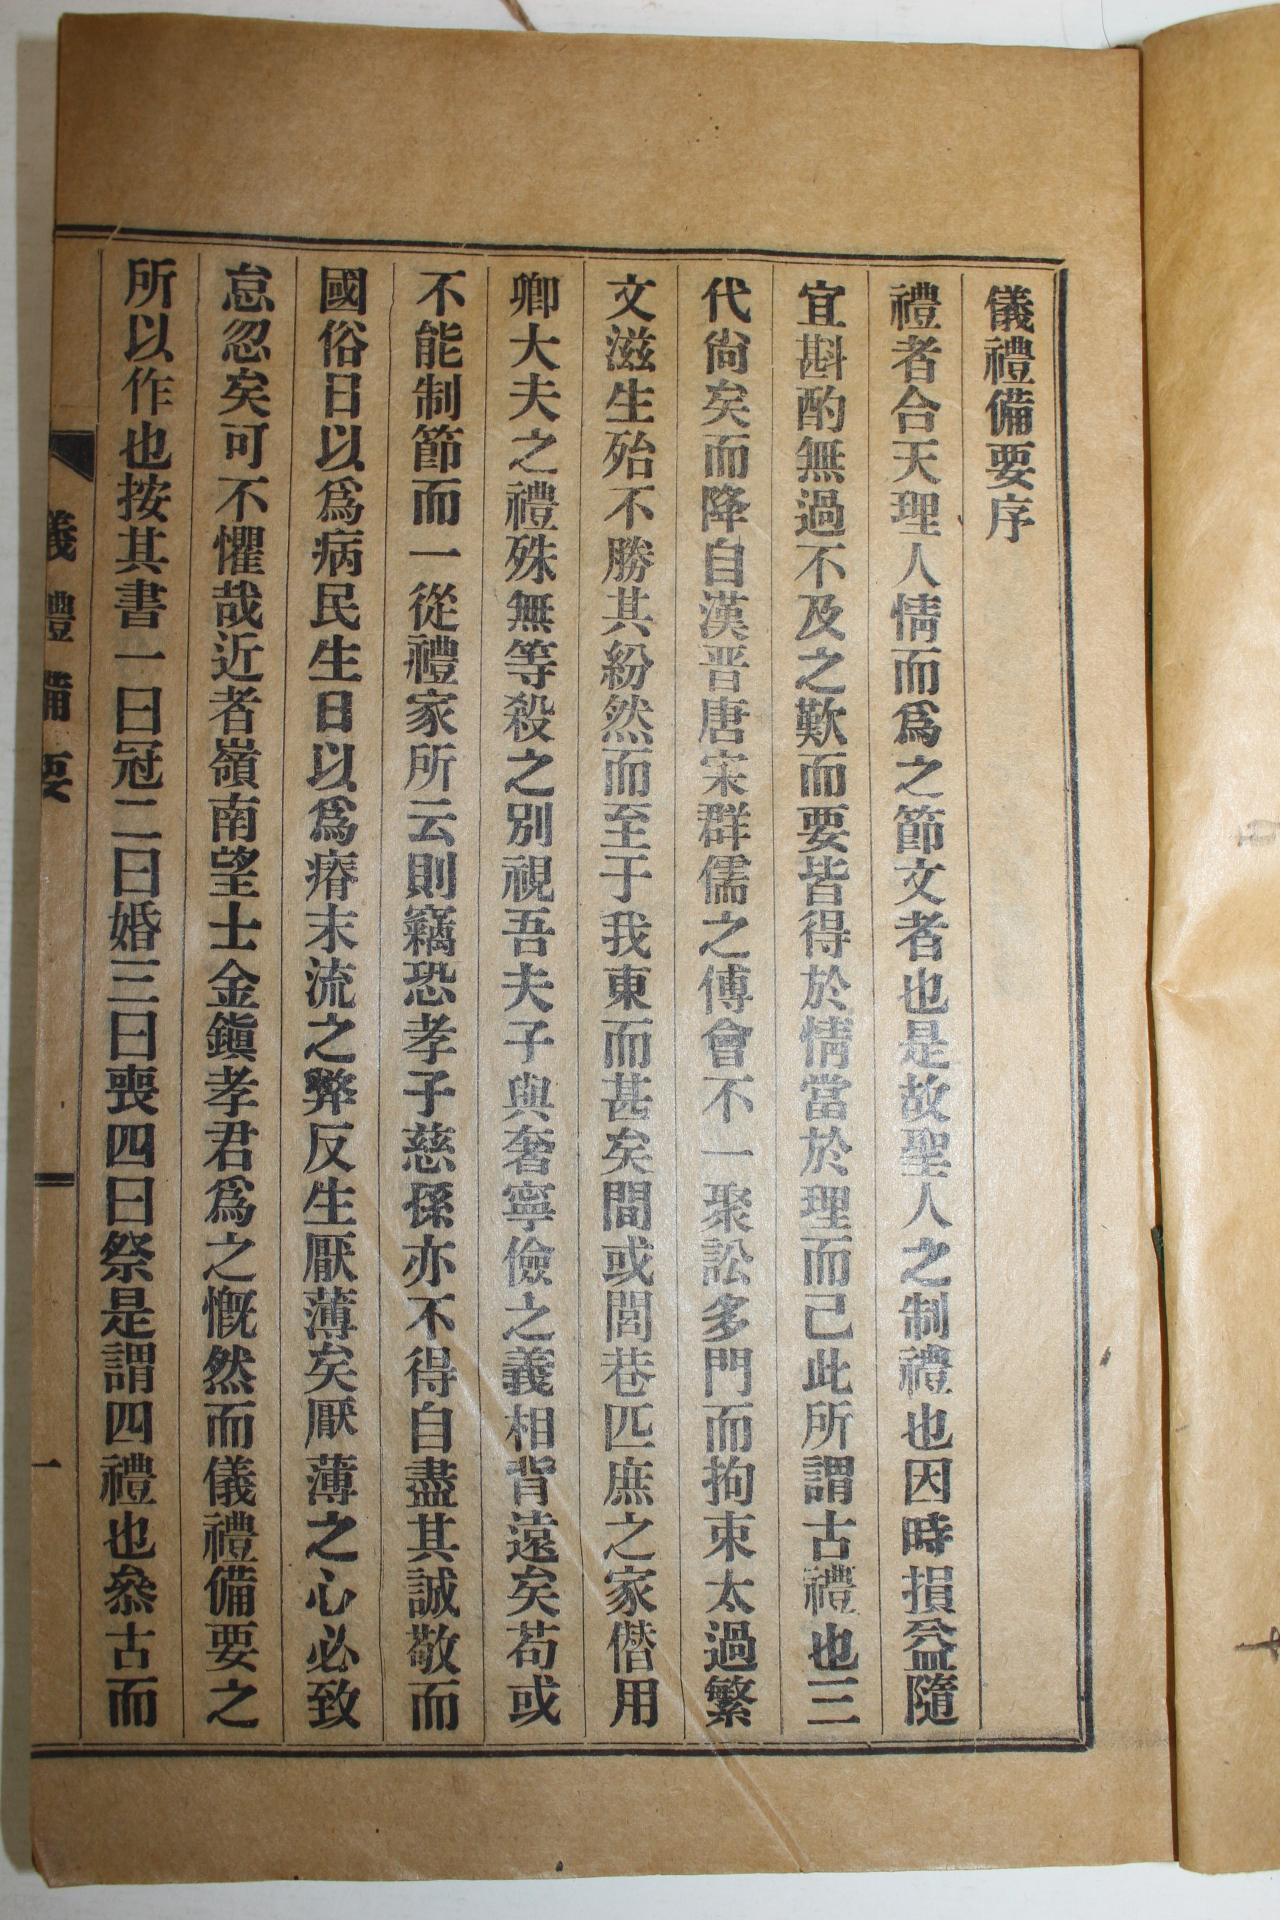 儀禮備要序
禮者合天理人情而爲之節文者也是故聖人之制禮也因時損益隨
宜斟酌無過不及之歎而要皆得於情當於理而己此所謂古禮也三
代尙矣而降自漢晋唐宋群儒之傅會不一聚訟多門而拘束太過繁
文滋生殆不勝其紛然而至于我東而甚矣間或閭巷匹庶之家僭用
卿大夫之禮殊無等殺之別視吾夫子與奢寧儉之義相背遠矣苟或
不能制節而一從禮家所云則竊恐孝子慈孫亦不得自盡其誠敬而
國俗日以爲病民生日以爲瘠末流之弊反生厭薄矣厭薄之心必致
怠忽矣可不懼哉近者嶺南望士金鎭孝君爲之慨然而儀禮備要之
所以作也按其書一曰冠二曰婚三曰喪四曰祭是謂四禮也叅古而
儀禮備要
一